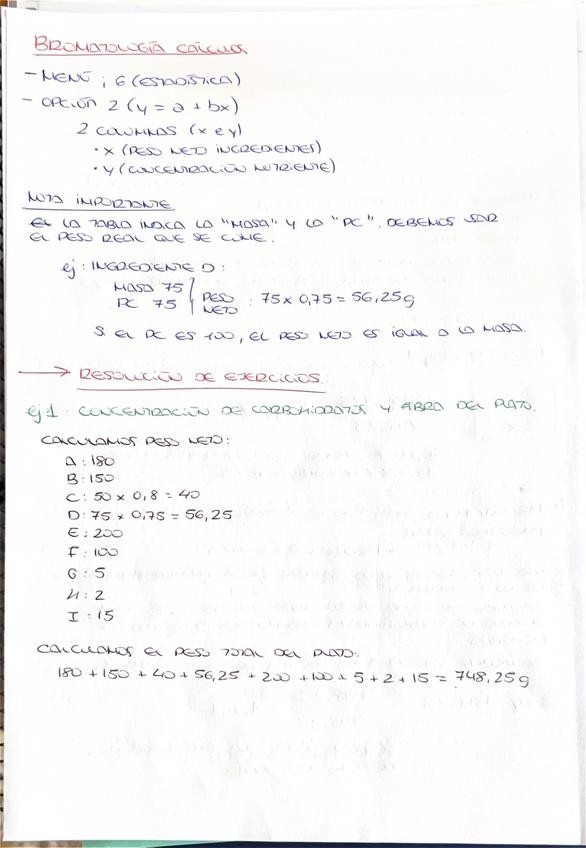 BROMATOLOGÍA CÁLCULOS
- MENÚ ; 6 (ESTADÍSTICA)
- OPCIÓN 2 (y = a + bx)
2 COLUMNAS (x e y)
• X (PESO NETO INGREDIENTES)
• Y (CONCENTRACIÓN NUTRIENTE)
NOTA IMPORTANTE
LA TABLA INDICA LA "MASA" Y LA "PC". DEBEMOS USAR
EL PESO REAL QUE SE COME.
ej: INGREDIENTE D:
MASA 75
PC 75
PESO NETO : 75 x 0,75 = 56,25g
SI EL PC ES 100, EL PESO NETO ES IGUAL A LA MASA.
→ RESOLUCIÓN DE EJERCICIOS.
ej 1: CONCENTRACIÓN DE CARBOHIDRATOS Y FIBRA DEL PLATO.
CALCULAMOS PESO NETO:
A : 180
B : 150
C : 50 x 0,8 = 40
D : 75 x 0,75 = 56,25
E : 200
F : 100
G : 5
H : 2
I : 15
CALCULAMOS EL PESO TOTAL DEL PLATO:
180 + 150 + 40 + 56,25 + 200 + 100 + 5 + 2 + 15 = 748,25g